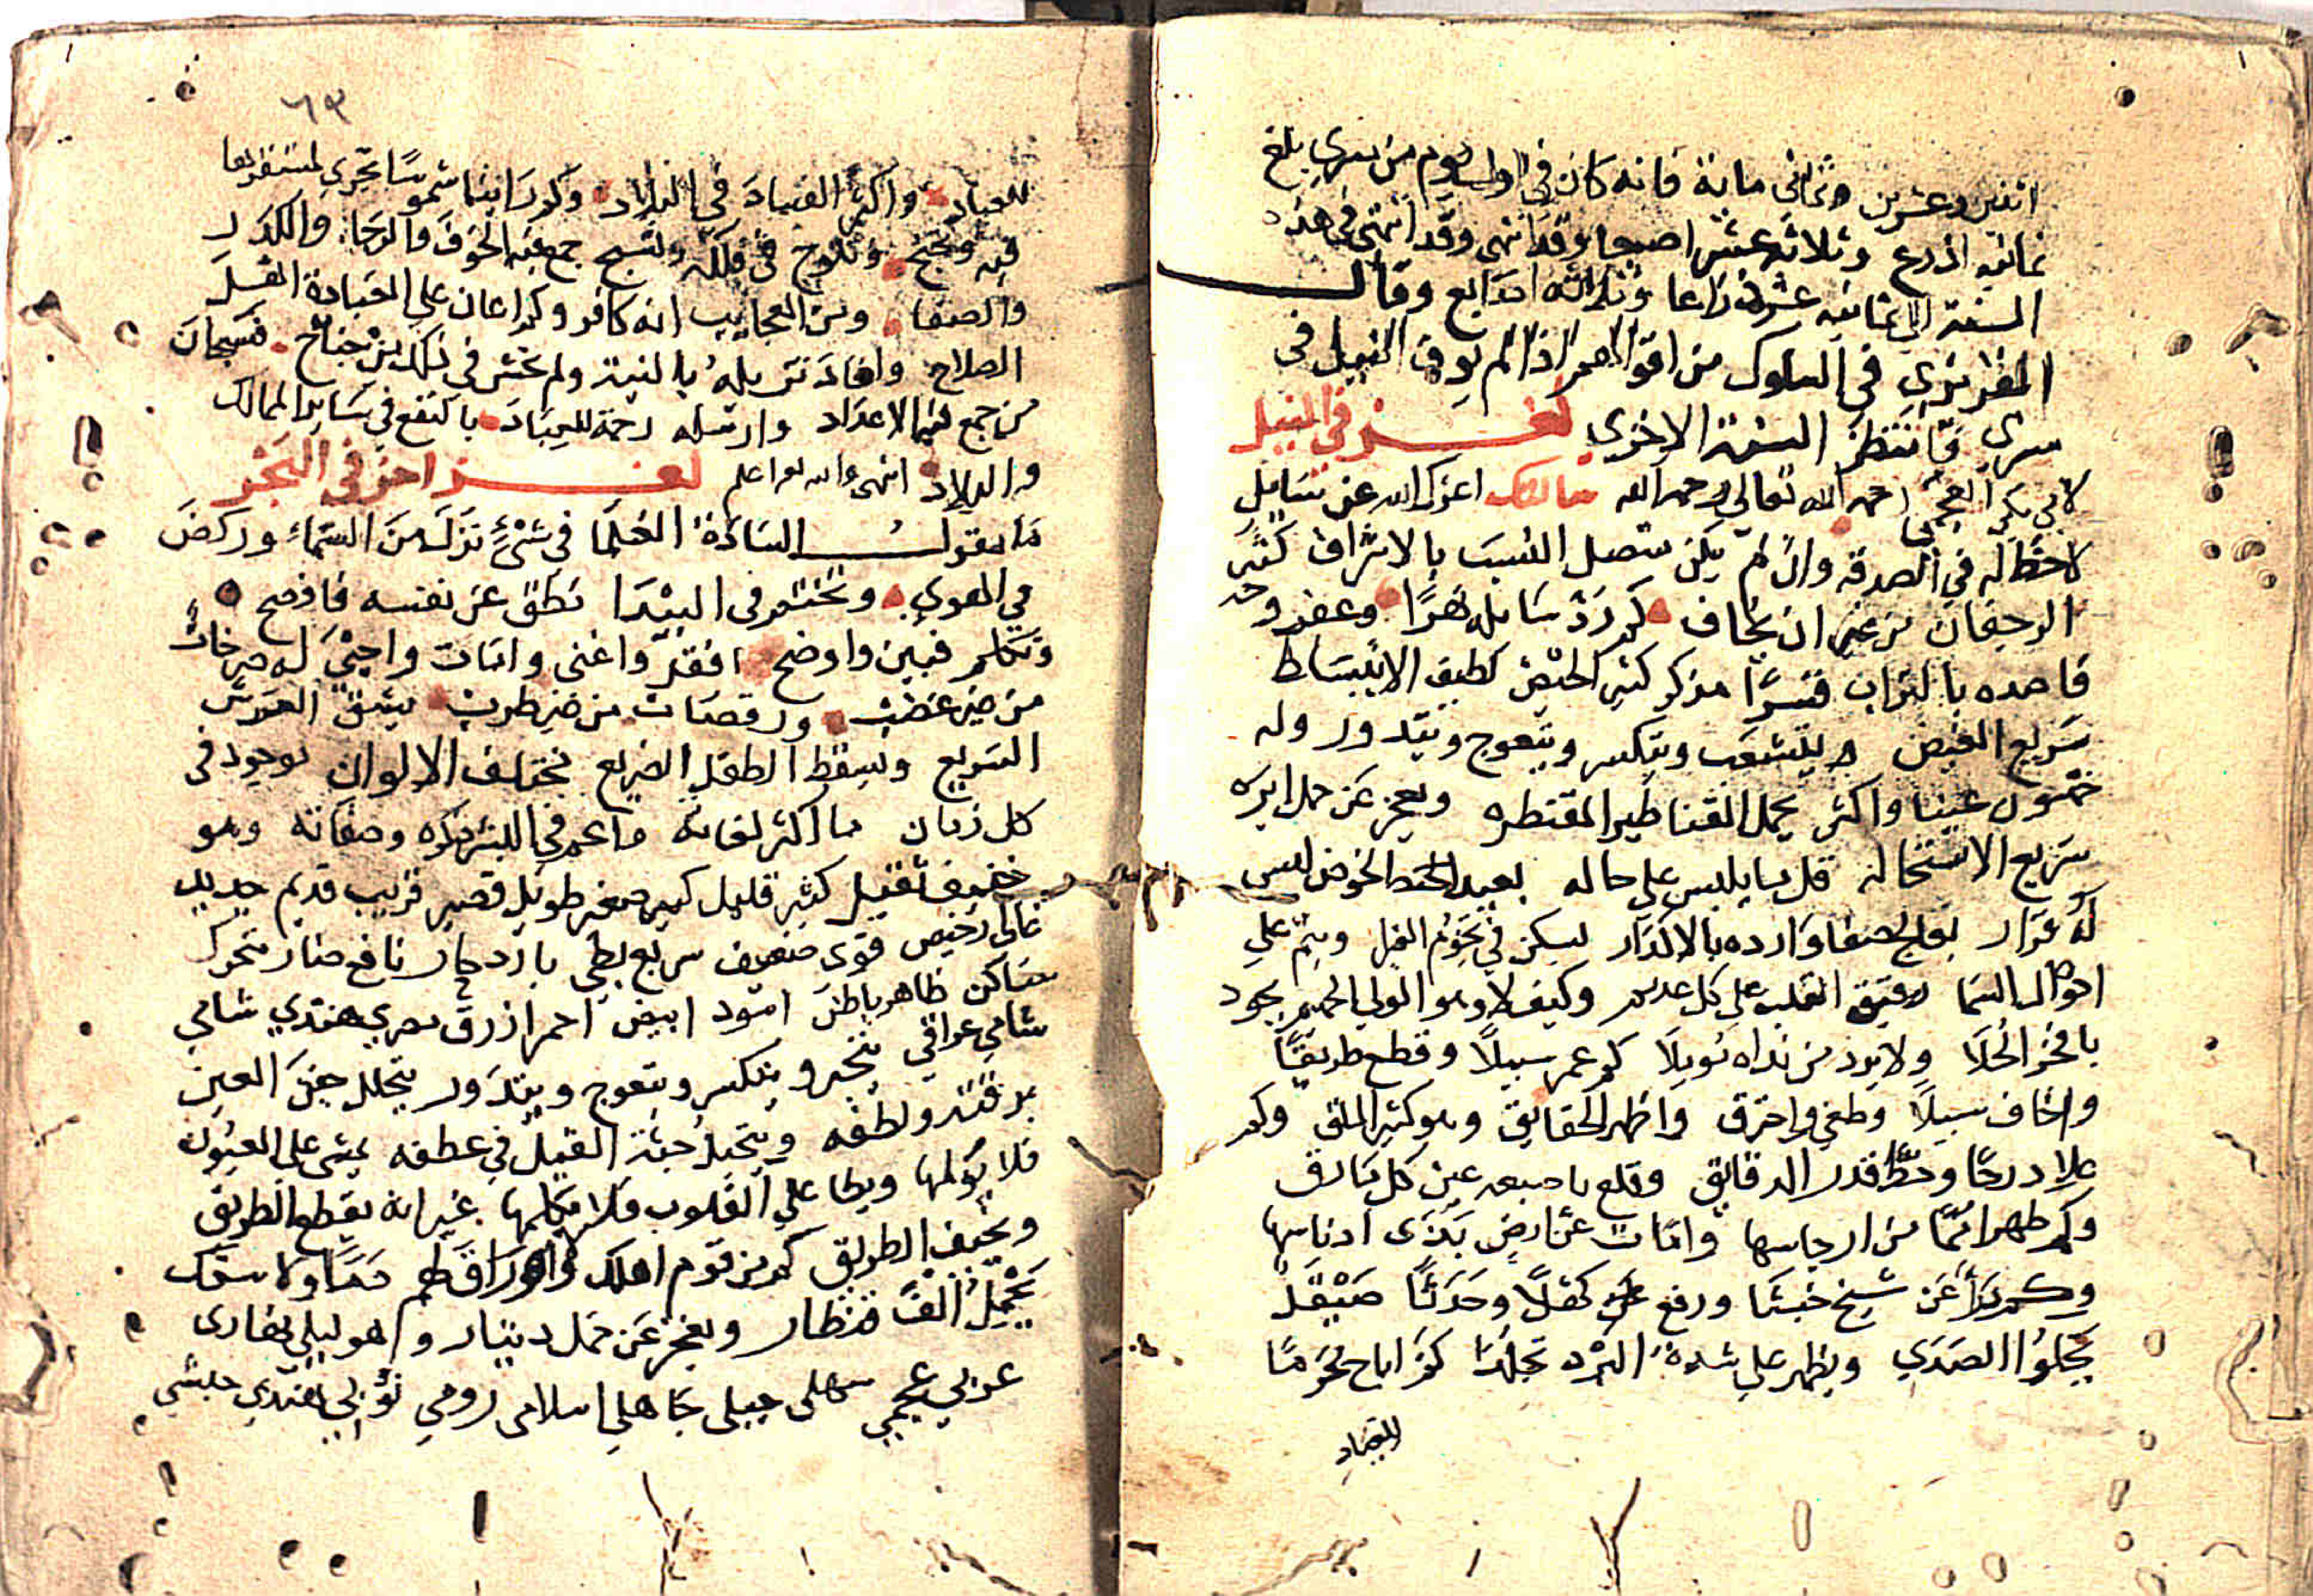 اثنين وعشرين وثماني مائة فانه كان في اول يوم من مسري بلغ
ثمانية اذرع وثلاثة عشر اصبعا وقد انتهى في هذه
السنة الى ثمانية عشر ذراعا وثلاثة اصابع وقال
المقريزي في السلوك من اقوال مصر اذا لم يوف النيل في
مسري فانتظره السنة الاخري لغز في النيل
لابي بكر العجمي رحمه الله تعالى ورحمه الله سالتك اعزك الله عن سايل
لا حظ له في الصدقة وان لم يكن متصل النسب بالاشراف كثير
الرجفان من غير ان يخاف كم رد سايله نهرا وعفر وجه
قاصده بالتراب قسرا مذكر كثير الحيض لطيف الانبساط
سريع القبض يتشعب ويتكسر ويتعوج ويتدور وله
خمسون عينا واكثر يحمل القناطير المقنطره ويعجز عن حمل ابره
سريع الاستحالة قل ما يلبس على حاله بعيد الخوض ليس
له قرار الصفا وارده بالاكدار يسكن في تخوم الفلا وينم على
احوال السما رقيق القلب على كل عديم وكيف لا وهو الولي الحميم يجود
بافخر الحلا ولا يرد من نداه نويلا كم عمر سبيلا وقطع طريقا
واخاف سبيلا وطغي واحترق واظهر الحقايق وهو كثير الملق وكم
علا درجا وحط قدر الدقايق وقلع باصبعه عين كل مارق
وكم طهر امما من ارجاسها واماط عن ارض بدن ادناسها
وكم برا عن شيخ خبثا ورفع عن كهل حدثا صيقل
يجلوا الصدي ويظهر على شدة البرد تجلدا كم اباح محرما
للعباد
٦٩
للعباد واكثر الفساد في البلاد وكم راينا شمسا تجري لمستقر لها
فيه وتجنح وتلوح في فلكه وتسبح جمع فيه الخوف والرجا والكدر
والصفا ومن العجايب انه كافر وكم اعان على العبادة اهل
الصلاح وافاد من بله بالنية ولم يخش في ذلك من جناح فسبحان
من جمع فيه الاضداد وارسله رحمة للعباد بالنفع في ساير الممالك
والبلاد انتهى والله اعلم لغز اخر في البحر
ما يقول السادة العلما في شيء نزل من السماء وركض
في الهوي ويختم في البيدا نطق عن نفسه فافصح
وتكلم فبين واوضح افقر واغنى وامات واحيى له صرخات
من غير غضب ورقصات من غير طرب يسبق الفرس
السريع ويسقط الطفل الرضيع مختلف الالوان يوجد في
كل زمان ما اكثر لغاته واعم في البشر ذكره وصفاته وهو
خفيف ثقيل كثير قليل كبير صغير طويل قصير قريب قديم جديد
غالي رخيص قوي ضعيف سريع بطي بارد حار نافع ضار متحرك
ساكن ظاهر باطن اسود ابيض احمر ازرق مصري هندي شامي
شامي عراقي يتجبر ويتكسر ويتعوج ويتدور يتخلل جفن العين
برقته ولطفه ويتحمل جثة الفيل في عطفه يمشي على العيون
فلا يؤلمها ويطا على القلوب فلا يكلمها غير انه يقطع الطريق
ويخيف الطريق كم من قوم اهلك واهراق لهم دما ولا سفك
يحمل الف قنطار ويعجز عن حمل دينار وهو ليلي نهاري
عربي عجمي سهلي جبلي جاهلي اسلامي رومي نوبي هندي حبشي